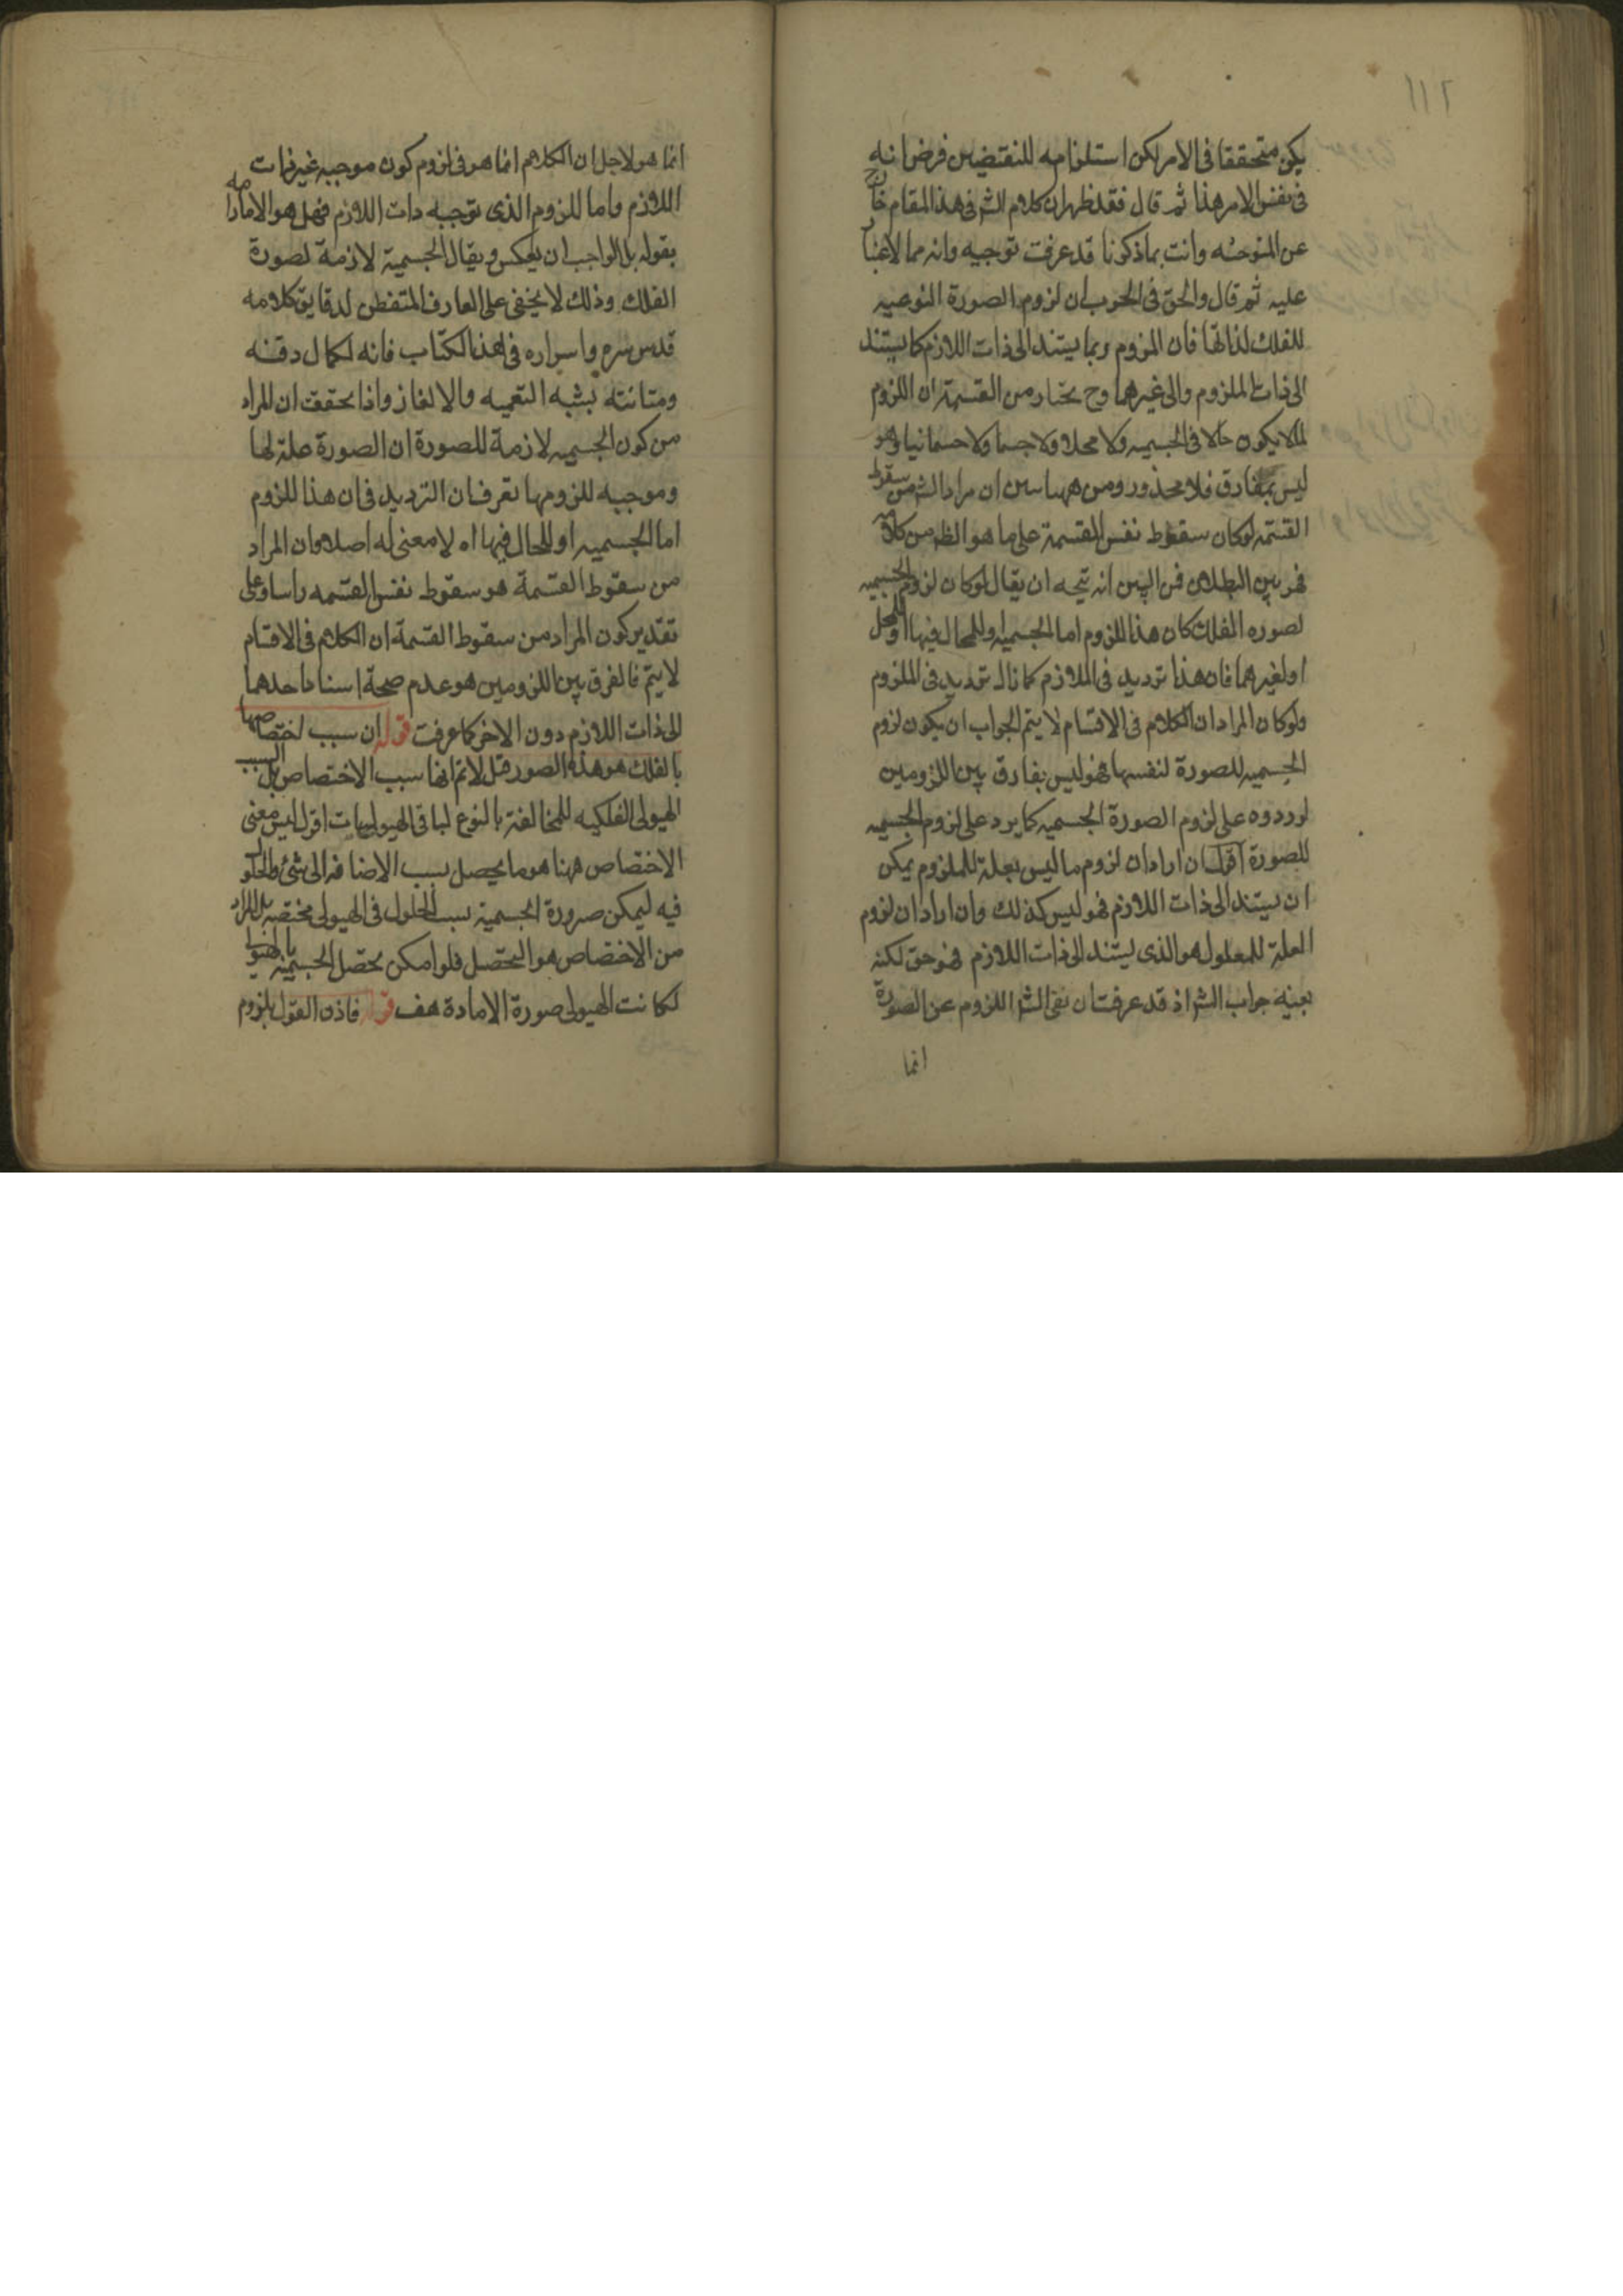 ١١٢
يكن متحققا فى الامر لكن استلزامه للنقيضين فرض انه
فى نفس الامر هذا ثم قال فقد ظهر ان كلام الش فى هذا المقام خارج
عن التوجيه وانت بما ذكرنا قد عرفت توجيهه وانه مما لا غبار
عليه ثم قال والحق فى الجواب ان لزوم الصورة النوعيه
للفلك لذاتها فان اللزوم ربما يستند الى ذات اللازم كما يستند
الى ذات الملزوم والى غيرهما وح يختار من القسمة ان اللزوم
لما لا يكون حالا فى الجسميه ولا محلا ولا جسما ولا جسمانيا وهو
ليس بمفارق فلا محذور ومن ههنا تبين ان مراد الش من سقوط
القسمة لو كان سقوط نفس القسمة على ما هو الظ من كلامه
فهو بين البطلان فمن البين انه يتجه ان يقال لو كان لزوم الجسميه
لصوره الفلك كان هذا اللزوم اما للجسميه او للحال فيها او للمحل
او لغيرهما فان هذا ترديد فى اللازم كما ان ذاك ترديد فى الملزوم
ولو كان المراد ان الكلام فى الاقسام لا يتم الجواب ان يكون لزوم
الجسميه للصورة لنفسها فهو ليس بفارق بين اللزومين
لوروده على لزوم الصورة الجسميه كما يرد على لزوم الجسميه
للصورة اقول ان اراد ان لزوم ما ليس بعلة للملزوم يمكن
ان يستند الى ذات اللازم فهو ليس كذلك وان اراد ان لزوم
العلة للمعلول هو الذى يستند الى ذات اللازم فهو حق لكنه
بعينه جواب الش اذ قد عرفت ان نفى الش اللزوم عن الصورة
انما
انما هو لاجل ان الكلام انما هو فى لزوم كون موجبه غير ذات
اللازم واما اللزوم الذى توجبه ذات اللازم فهل هو الا ما رامه
بقوله بل الواجب ان يعكس ويقال الجسمية لازمة لصورة
الفلك وذلك لا يخفى على العارف المتفطن لدقايق كلامه
قدس سره واسراره فى هذا الكتاب فانه لكمال دقته
ومتانته يشبه التعميه والالغاز واذا تحققت ان المراد
من كون الجسميه لازمة للصورة ان الصورة علة لها
وموجبه للزومها تعرف ان الترديد فى ان هذا اللزوم
اما للجسميه او للحال فيها اه لا معنى له اصلا وان المراد
من سقوط القسمة هو سقوط نفس القسمه راسا وعلى
تقدير كون المراد من سقوط القسمة ان الكلام فى الاقسام
لا يتم فالفرق بين اللزومين هو عدم صحة اسناد احدهما
الى ذات اللازم دون الاخر كما عرفت قوله ان سبب اختصاصها
بالفلك هو هذه الصور قيل لا نم انها سبب الاختصاص بل السبب
الهيولى الفلكيه المخالفة بالنوع لباقى الهيوليات اقول ليس معنى
الاختصاص ههنا هو ما يحصل بسبب الاضافه الى شئ والحلول
فيه ليمكن صيرورة الجسمية بسبب الحلول فى الهيولى مختصة بل المراد
من الاختصاص هو التحصل فلو امكن تحصل الجسمية بالهيولى
لكانت الهيولى صورة لا مادة هف قوله فاذن القول بلزوم